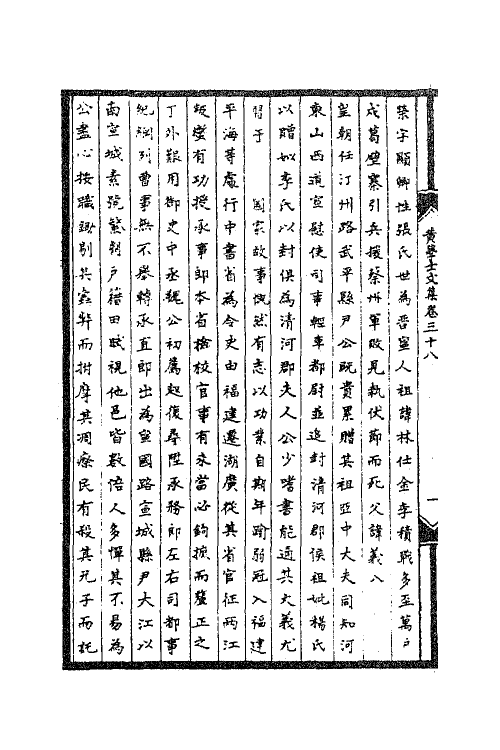 榮字顯卿姓張氏世為晉寧人祖諱林仕金季積戰多至萬戶
戍葛壁寨引兵援蔡州軍敗見執伏節而死父諱義入
皇朝任汀州路武平縣尹公既貴累贈其祖亞中大夫同知河
東山西道宣慰使司事輕車都尉並追封清河郡侯祖妣楊氏
以贈妣李氏以封俱為清河郡夫人公少嗜書能通其大義尤
習于　國家故事慨然有志以功業自期年踰弱冠入福建
平海等處行中書省為令史由福建遷湖廣從其省官征兩江
叛蠻有功授承事郎本省檢校官事有未當必鉤擿而釐正之
丁外艱用御史中丞魏公初薦起復尋陞承務郎左右司都事
紀綱列曹事無不舉轉承直郎出為寧國路宣城縣尹大江以
南宣城素號繁劇戶籍田賦視他邑皆數倍人多憚其不易為
公盡心按職鋤剔其蠹弊而拊摩其凋瘵民有殺其兄子而託
黃學士文集卷三十八
一